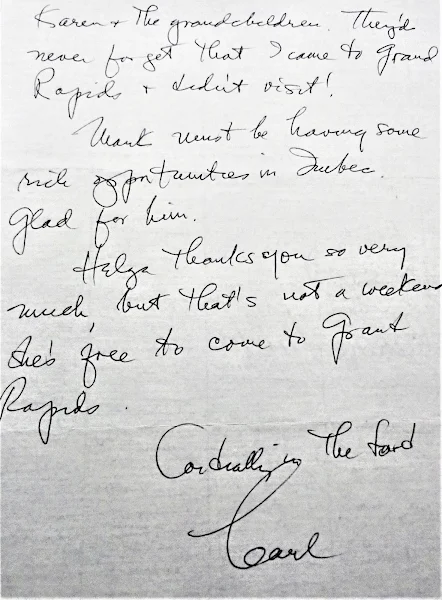 Karen + The grandchildren. They'd
never forget that I came to Grand
Rapids + didn't visit!
Mark must be having some
rich opportunities in Quebec.
Glad for him.
Helga thanks you so very
much, but that's not a weekend
she's free to come to Grant
Rapids.
Cordially in The Lord
Carl